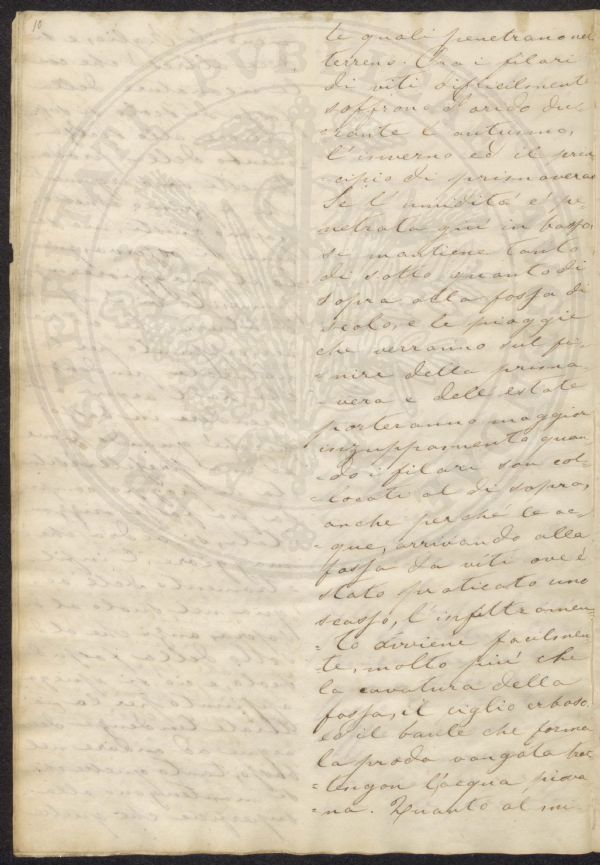 10
te quali penetrano nel
terreno. Ora i filari
di viti difficilmente
soffrono l'arido du-
-rante l'autunno,
l'inverno ed il prin
-cipio di primavera.
Se l'umidità è pe
netrata qui in basso,
si mantiene tanto
di sotto quanto di
sopra alla fossa di
scolo, e le pioggie
che verranno sul fi-
-nire della prima-
-vera e dell'estate
porteranno maggior
inzuppamento quan
-do i filari son col-
-locati al di sopra,
anche perché le ac-
-que, arrivando alla
fossa da viti ove è
stato praticato uno
scasso, l'infeltramen-
-to avviene facilmen-
-te, molto più che
la cavatura della
fossa, il ciglio erboso
ed il banle che forma
la proda vangata trat
-tengon l'acqua piova
-na. Quanto al mi